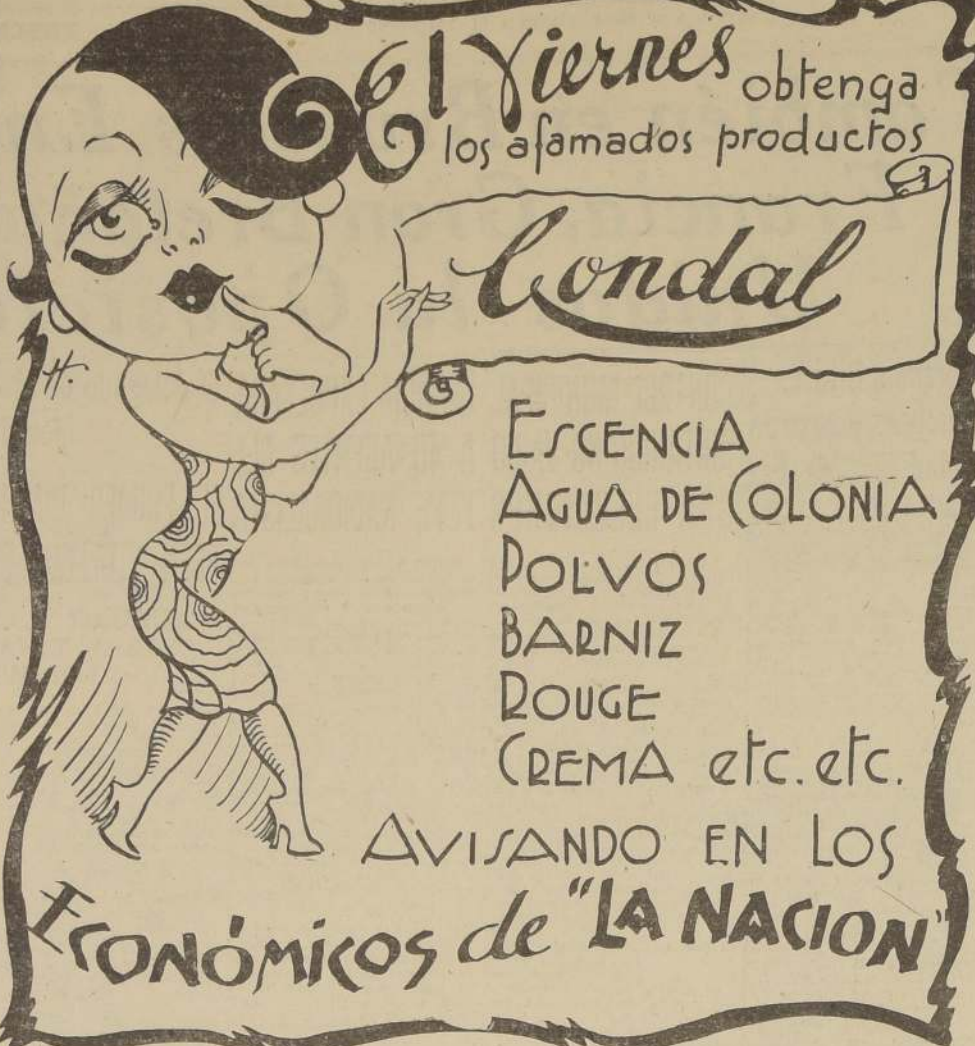 El Viernes obtenga
los afamados productos
Condal
H.
ESCENCIA
AGUA DE COLONIA
POLVOS
BARNIZ
ROUGE
CREMA etc. etc.
AVISANDO EN LOS
ECONÓMICOS de "LA NACION"